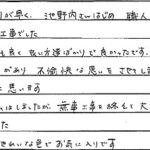 が早く、池野内さんはじめ 職人
工事でした
も良く 良い方達ばかりで良かったです。
があり 不愉快な思いをさせてし
に思います
はしましたが 無事工事を終えて大
た
きれいな色で お気に入りです